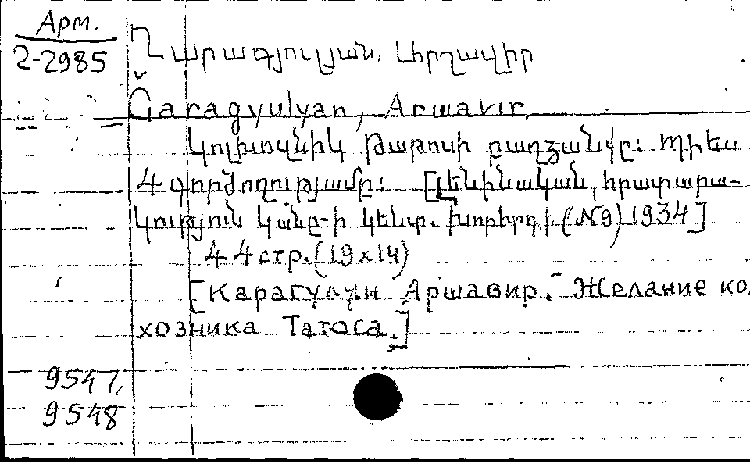 Арм.
2-2985
Ղարագյուլյան, Արշավիր
Garagyulyan, Arшavir
Կոլխոզնիկ Թաթոսի ցանկությունը: Պիես
4 գործողությամբ: [Լենինական, հրատարա-
կություն կենտ. խորհրդ. (№9) 1934]
44 стр. (19x14)
[Карагулян Аршавир. Желание кол
хозника Татоса.]
9547,
9548